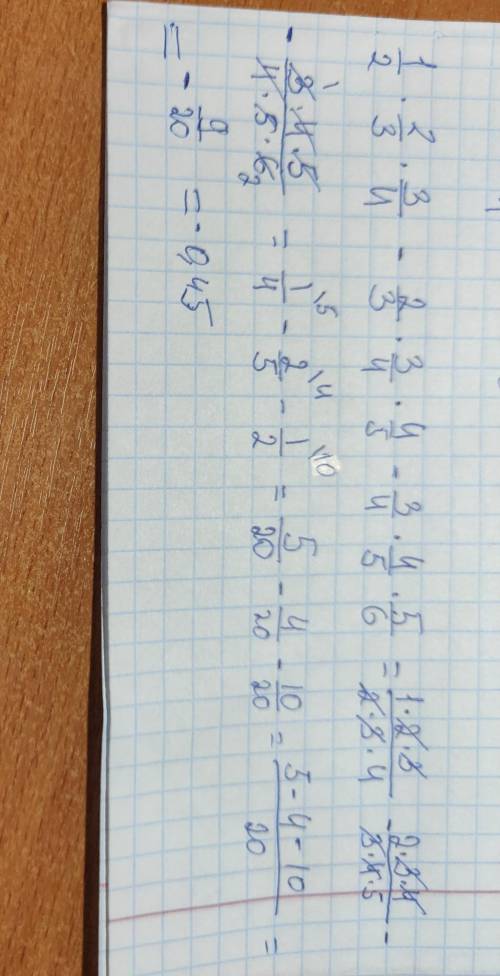 1/2 · 2/3 · 3/4 - 2/3 · 3/4 · 4/5 - 3/4 · 4/5 · 5/6 = 1·2·3/2·3·4 - 2·3·4/3·4·5 -
- 3·4·5/4·5·6 1 2 = 1/4 \5 - 2/5 \4 - 1/2 \10 = 5/20 - 4/20 - 10/20 = 5-4-10/20 =
= - 9/20 = - 0,45